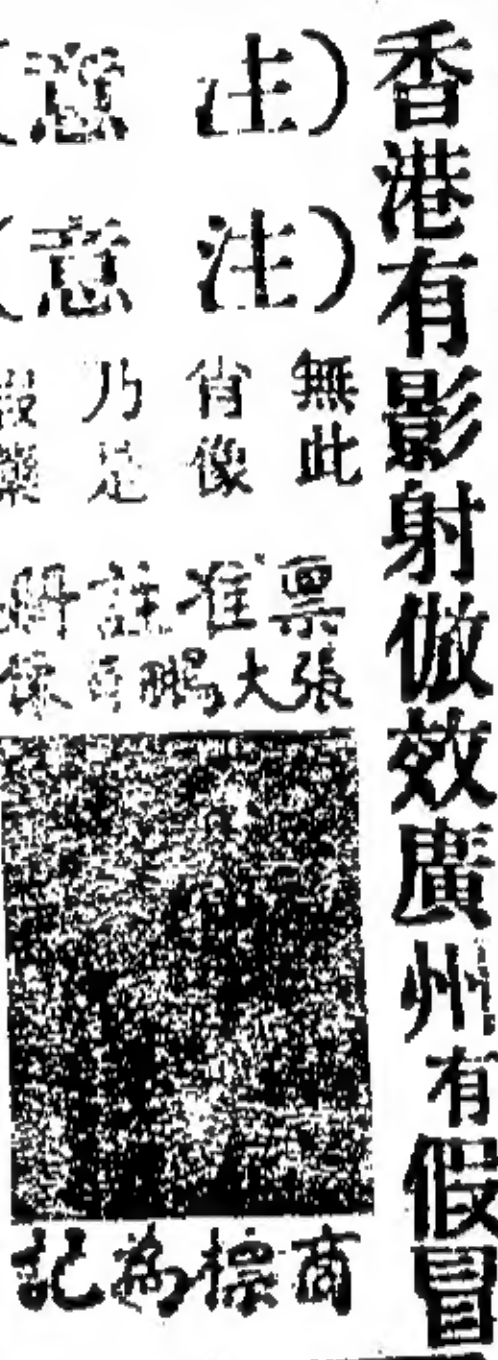 香港有影射倣效廣州有假冒
（注意）
（注意）
無此
肖像
乃是
假藥
禀准註冊
張大鵬肖像
商標為記